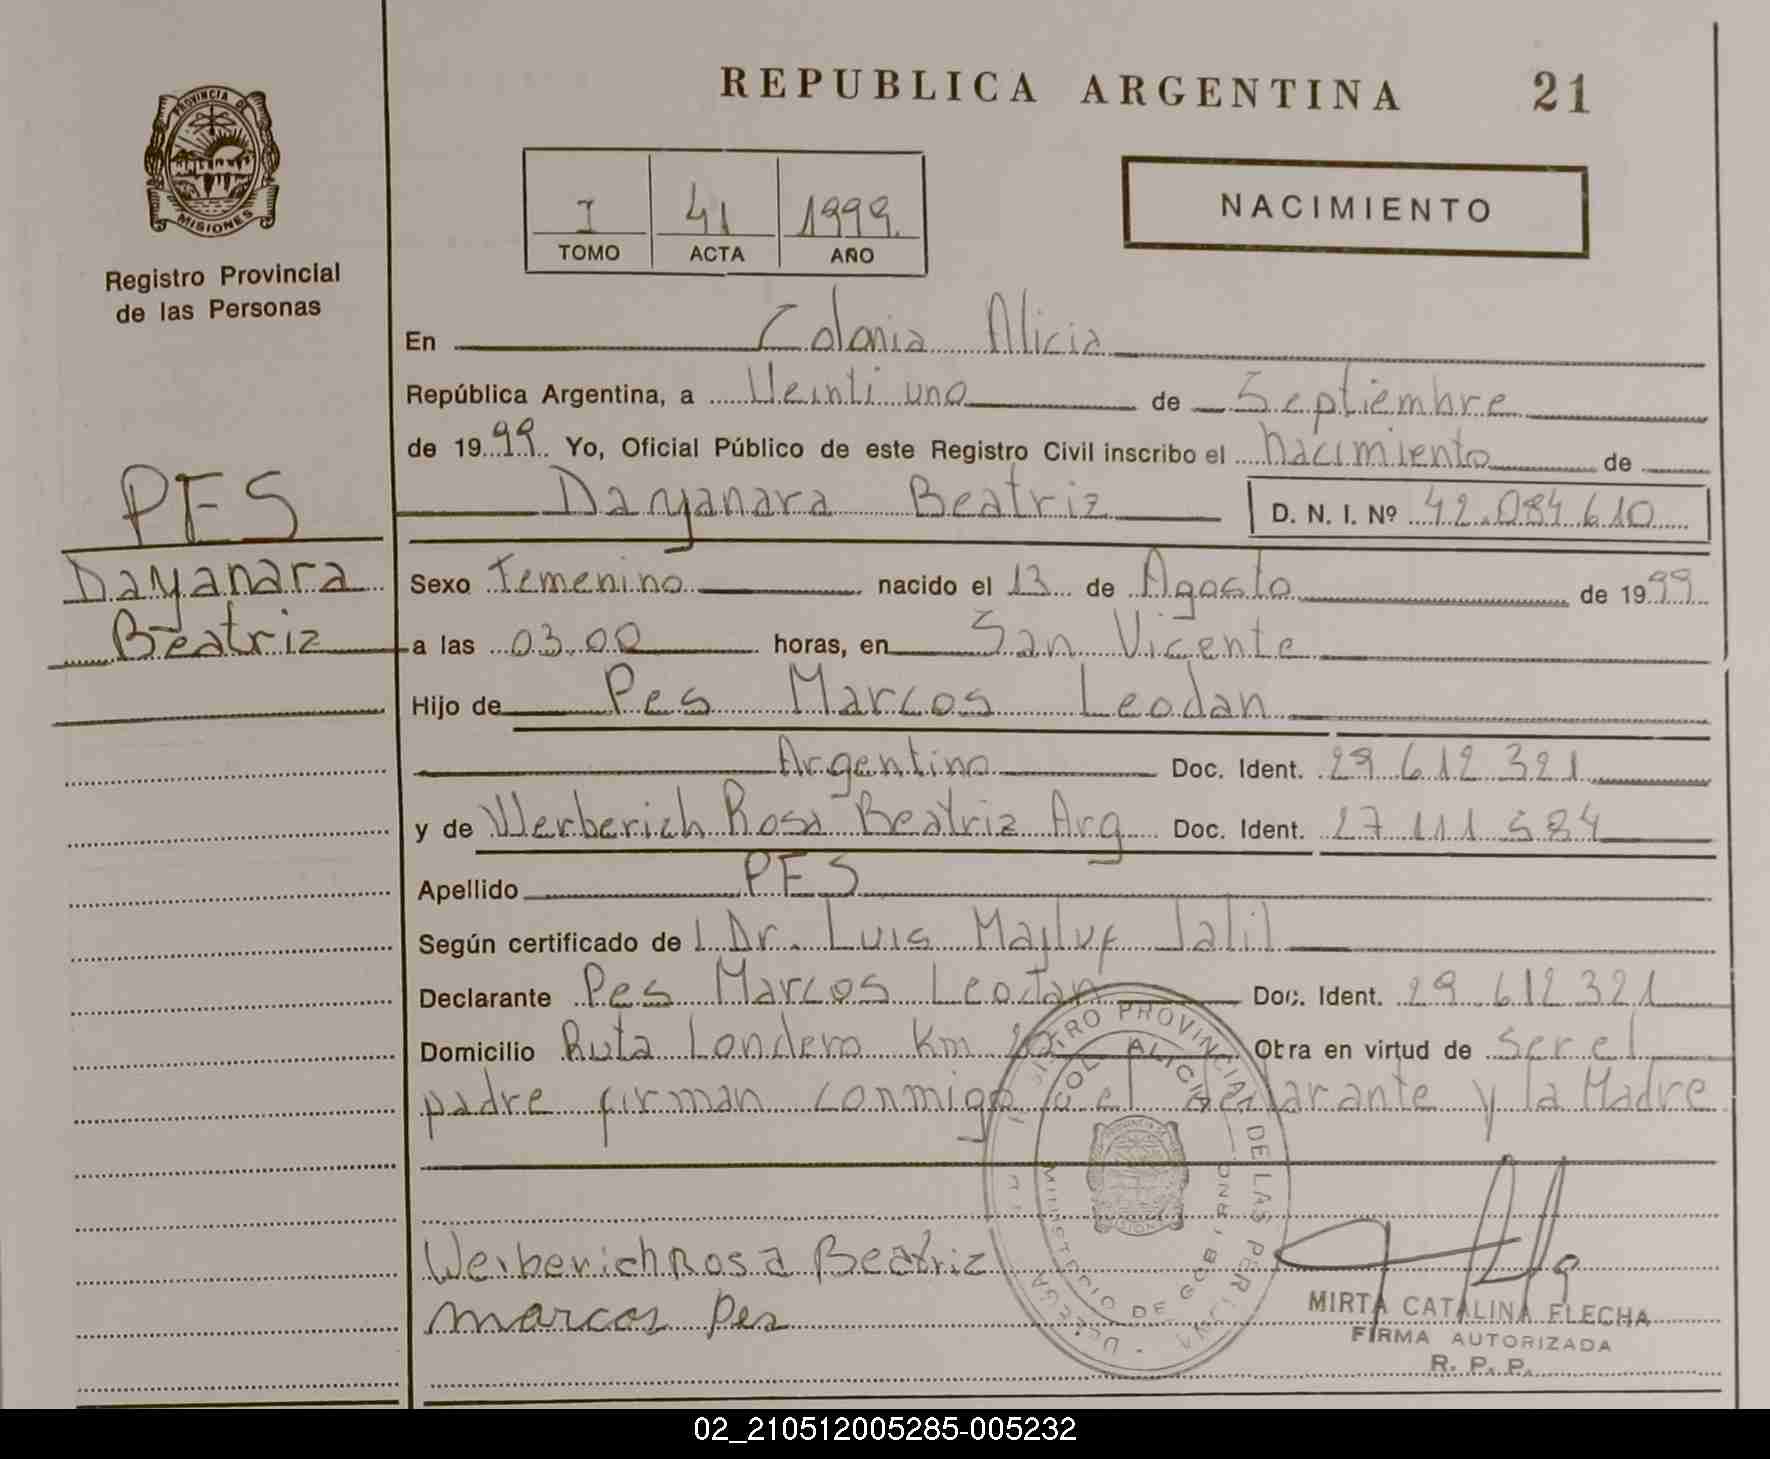 REPUBLICA ARGENTINA 21
PROVINCIA DE
MISIONES
Registro Provincial
de las Personas
I 41 1999
TOMO ACTA AÑO
NACIMIENTO
En Colonia Alicia
República Argentina, a Veintiuno de Septiembre
de 1999 Yo, Oficial Público de este Registro Civil inscribo el nacimiento de
Dayanara Beatriz D. N. I. Nº 42.084.610
PES
Dayanara
Beatriz
Sexo Femenino nacido el 13 de Agosto de 1999
a las 03.00 horas, en San Vicente
Hijo de Pes Marcos Leodan
Argentino Doc. Ident. 29 612 321
y de Werberich Rosa Beatriz Arg Doc. Ident. 27 111 584
Apellido PES
Según certificado de Dr. Luis Majluf Jalil
Declarante Pes Marcos Leodan Doc. Ident. 29 612 321
Domicilio Ruta Londero Km Obra en virtud de ser el
padre firman conmigo el declarante y la Madre
Werberich Rosa Beatriz
Marcos Pes
COL. ALICIA
MINISTERIO DE GOBIERNO
MIRTA CATALINA FLECHA
FIRMA AUTORIZADA
R. P. P.
02_210512005285-005232